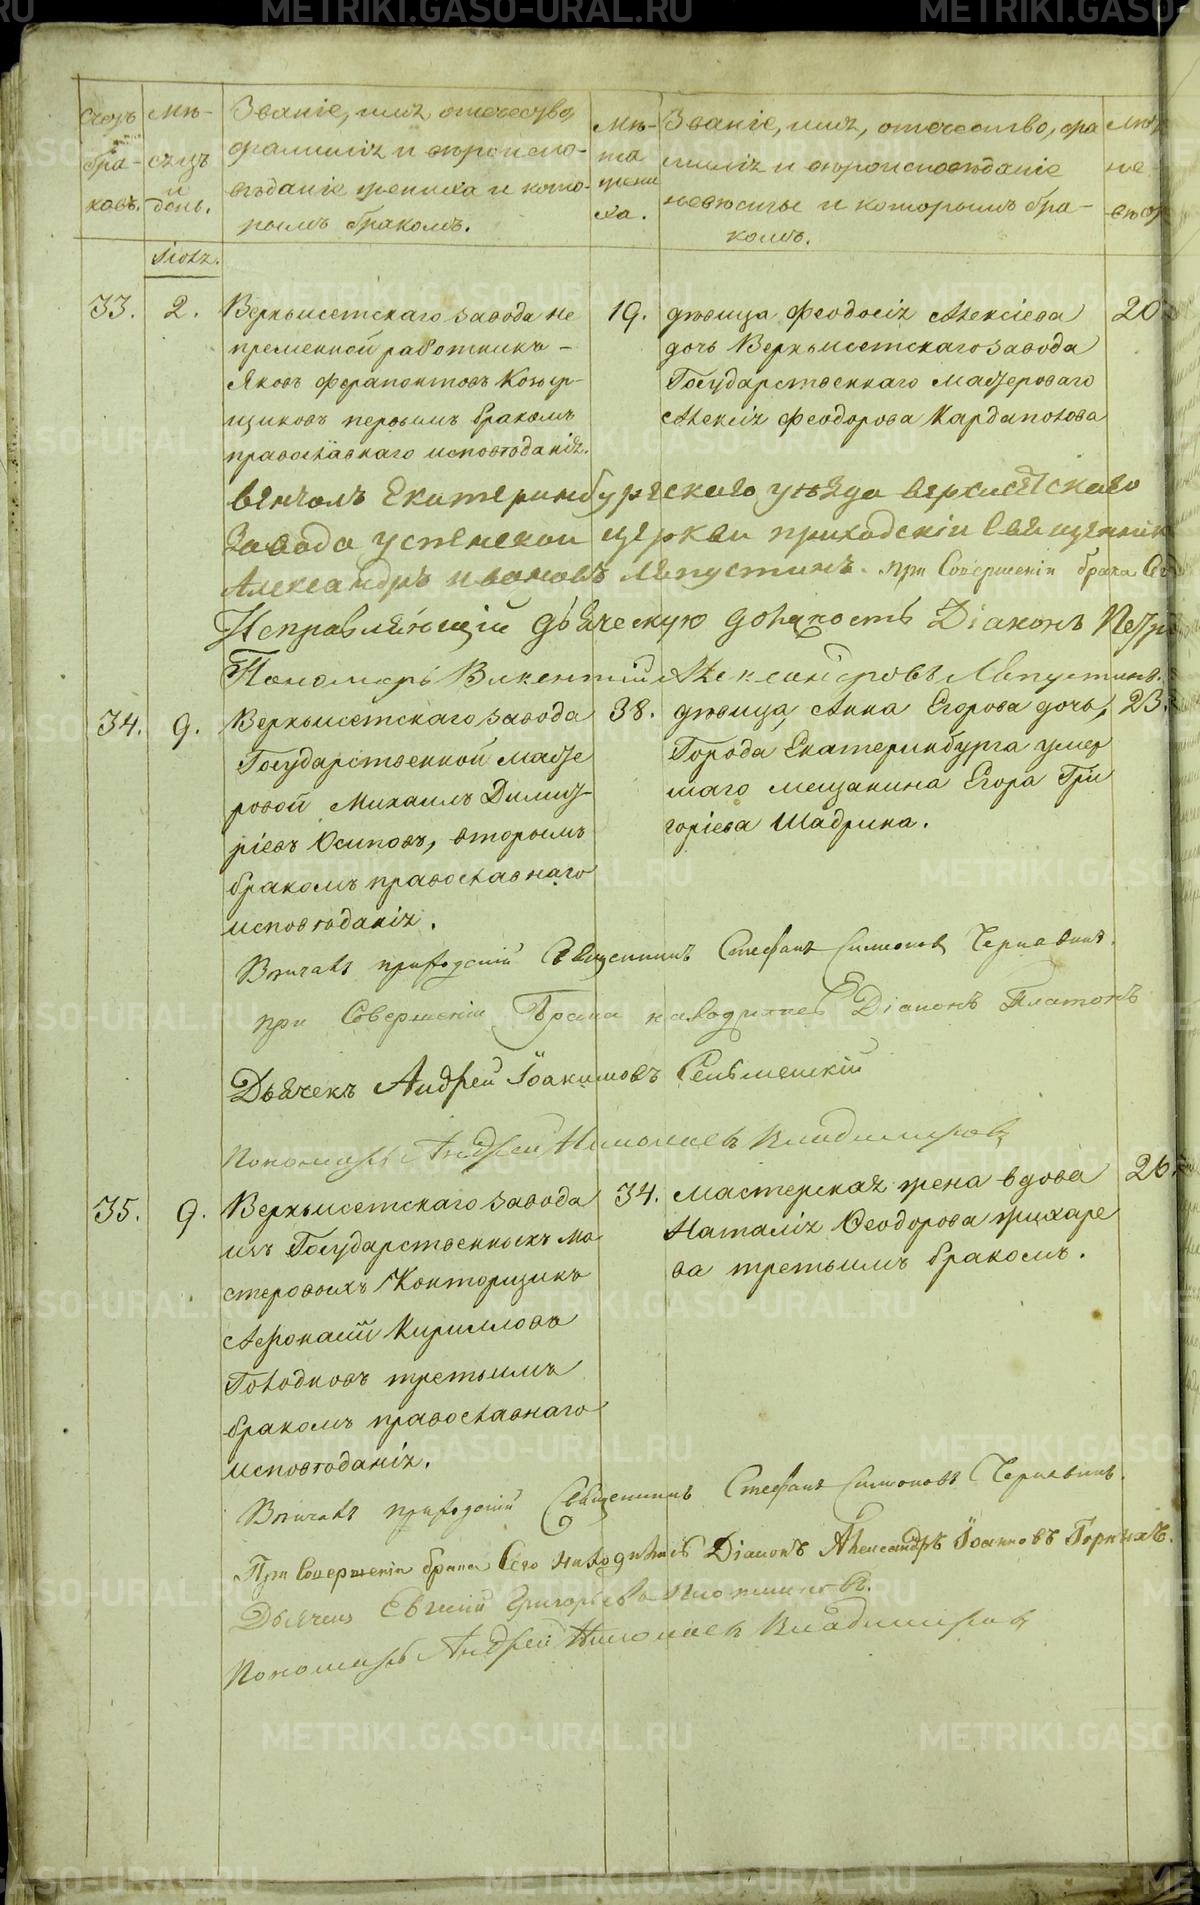 Счетъ браковъ.
Мѣсяцъ и день.
Званіе, имя, отечество,
фамилія и вѣроиспо-
вѣданіе жениха и кото-
рымъ бракомъ.
Лѣта жениха.
Званіе, имя, отечество, фа
милія и вѣроисповѣданіе
невѣсты и которымъ бра-
комъ.
Лѣт
не
вѣст
Іюля.
33. 2.
Верхъисетскаго завода не
пременной работникъ -
Яковъ Ферапонтовъ Копыр-
щиковъ первымъ бракомъ
православнаго исповѣданія.
19.
дѣвица Феодосія Алексіева
дочь Верхъисетскаго завода
Государственнаго мастероваго
Алексія Феодорова Кардаполова
20
венчалъ Екатеринбургскаго уѣзда верхисетскаго
завода успенской церкви приходскій священник
Александръ ивановъ Лепустинъ. при Совершеніи брака Сег
Исправляющій дьяческую должность Діаконъ Петръ
Пономарь Викентий Александровъ Лепустинъ.
34. 9.
Верхъисетскаго завода
Государственной масте
ровой Михаилъ Димит-
ріевъ Осиповъ, вторымъ
бракомъ православнаго
исповѣданія.
38.
дѣвица Анна Егорова дочь,
Города Екатеринбурга умер
шаго мещанина Егора Гри
горіева Шадрина.
23.
Венчалъ приходскій Священникъ Стефанъ Симоновъ Чернавинъ.
при Совершеніи Брака находился Діаконъ Платонъ
Дьячекъ Андрей Іоакимовъ
Пономарь Андрей Николаевъ Владимировъ
35. 9.
Верхъисетскаго завода
изъ Государственныхъ ма
стеровыхъ Конторщикъ
Афонасій Кирилловъ
Голодновъ третьимъ
бракомъ православнаго
исповѣданія.
34.
мастерская жена вдова
Наталія Феодорова Жихаре
ва третьимъ бракомъ.
26.
Венчалъ приходскій Священникъ Стефанъ Симоновъ Чернавинъ.
При Совершеніи брака Сего находился Діаконъ Александръ Іоанновъ Горныхъ.
Дьячекъ Евгеній Григорьевъ
Пономарь Андрей Николаевъ Владимировъ
METRIKI.GASO-URAL.RU